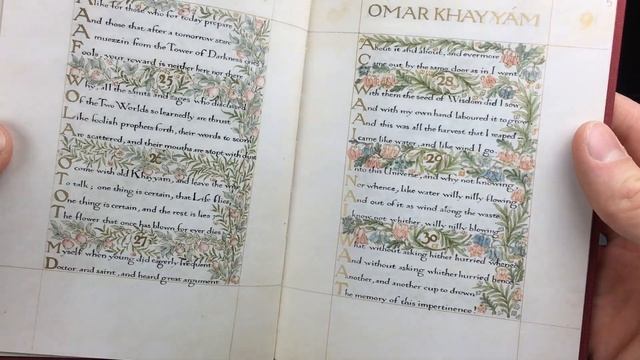 Alike for those who for today prepare
And those that after a tomorrow stare
A muezzin from the Tower of Darkness cries
Fools your reward is neither here nor there
25
Why, all the saints and sages who discuss'd
Of the Two Worlds so learnedly are thrust
Like foolish prophets forth, their words to scorn
Are scattered, and their mouths are stopt with dust
26
O come with old Khayyam, and leave the wise
To talk; one thing is certain, that Life flies
One thing is certain, and the rest is lies
The flower that once has blown for ever dies
27
Myself when young did eagerly frequent
Doctor and saint, and heard great argument
OMAR KHAYYAM
9
5
About it and about, and evermore
Came out by the same door as in I went
28
With them the seed of Wisdom did I sow
And with my own hand laboured it to grow
And this was all the harvest that I reaped
I came like water, and like wind I go
29
Into this Universe, and why not knowing
Nor whence, like water willy nilly flowing
And out of it as wind along the waste
I know not whither, willy nilly blowing
30
What, without asking hither hurried whence
And without asking whither hurried hence
Another, and another cup to drown
The memory of this impertinence!